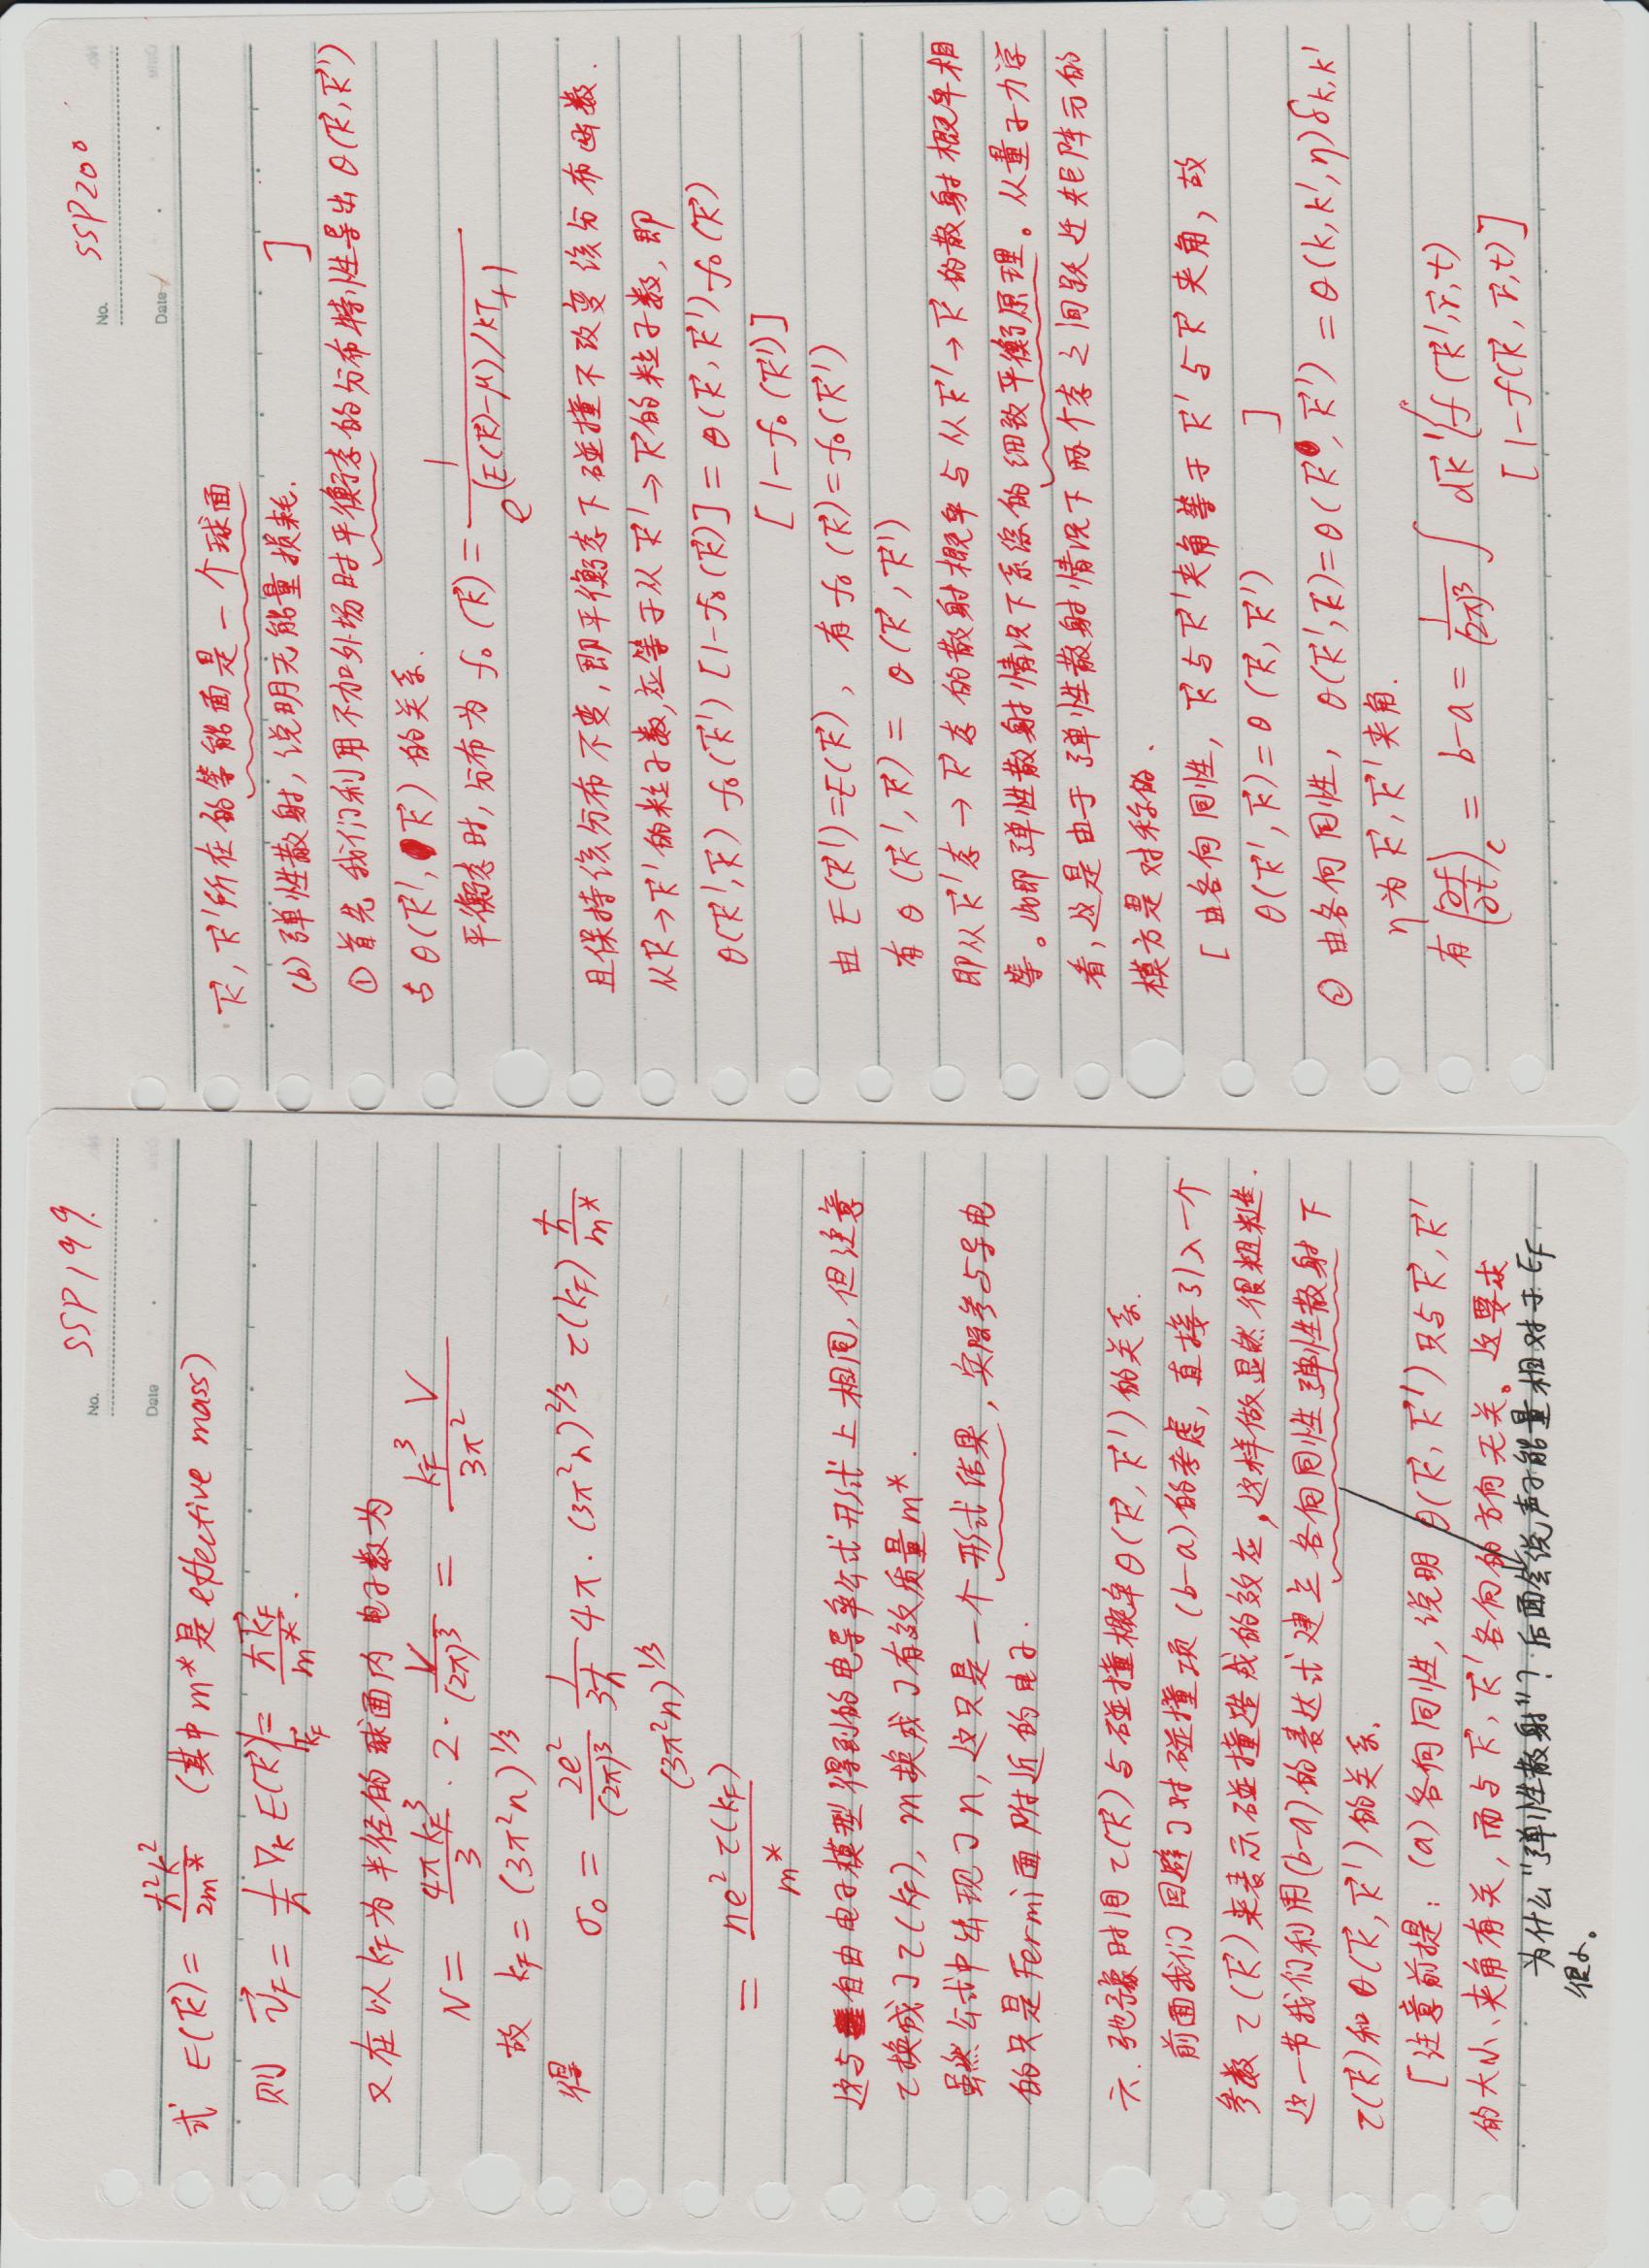 No. SSP199.
Date
式 E(k⃗) = ħ²k²/2m* (其中m*是effective mass)
则 v⃗_F = 1/ħ ∇_k E(k⃗)|_{k⃗_F} = ħk⃗_F/m*.
又在以k_F为半径的球面内电子数为
N = 4πk_F³/3 · 2 · V/(2π)³ = k_F³ V/3π²
故 k_F = (3π²n)^{1/3}
得 σ₀ = 2e²/(2π)³ 1/3ħ 4π · (3π²n)^{2/3} τ(k_F) ħ/m*
(3π²n)^{1/3}
= ne²τ(k_F)/m*
这与自由电子模型得到的电导率公式形式上相同, 但注意
τ换成了τ(k_F), m换成了有效质量m*.
虽然公式中出现了n, 这只是一个形式结果, 实际参与导电
的只是Fermi面附近的电子.
六. 弛豫时间τ(k⃗)与碰撞概率θ(k⃗, k⃗')的关系.
前面我们回避了对碰撞项(b-a)的考虑, 直接引入一个
参数τ(k⃗)来表示碰撞造成的效应, 这样做显然很粗糙.
这一节我们利用(b-a)的表达式建立各向同性弹性散射下
τ(k⃗)和θ(k⃗, k⃗')的关系.
[注意前提: (a)各向同性, 说明θ(k⃗, k⃗')只与k⃗, k⃗'
的大小、夹角有关, 而与k⃗, k⃗'各向的方向无关。这要求
为什么"弹性散射"? 后面会说, 声子能量相对于E_F
很小。
No. SSP200
Date
k⃗, k⃗'所在的等能面是一个球面
(b) 弹性散射, 说明无能量损耗. ]
① 首先我们利用不加外场时平衡态的分布特性导出θ(k⃗, k⃗')
与θ(k⃗', k⃗)的关系.
平衡态时, 分布为 f₀(k⃗) = 1/(e^{(E(k⃗)-μ)/kT}+1)
且保持该分布不变, 即平衡态下碰撞不改变该分布函数.
从k⃗→k⃗'的粒子数, 应等于从k⃗'→k⃗的粒子数, 即
θ(k⃗', k⃗) f₀(k⃗') [1-f₀(k⃗)] = θ(k⃗, k⃗') f₀(k⃗)
[1-f₀(k⃗')]
由 E(k⃗')=E(k⃗), 有 f₀(k⃗)=f₀(k⃗')
有 θ(k⃗', k⃗) = θ(k⃗, k⃗')
即从k⃗'态→k⃗态的散射概率与从k⃗'→k⃗的散射概率相
等。此即弹性散射情况下系综的细致平衡原理。从量子力学
看, 这是由于弹性散射情况下两个态之间跃迁矩阵元的
模方是对称的.
[由各向同性, k⃗与k⃗'夹角等于k⃗'与k⃗夹角, 故
θ(k⃗', k⃗)=θ(k⃗, k⃗') ]
② 由各向同性, θ(k⃗', k⃗)=θ(k⃗, k⃗') = θ(k, k', η)δ_{k,k'}
η为k⃗, k⃗'夹角.
有 (∂f/∂t)_c = b-a = 1/(2π)³ ∫ dk⃗' {f(k⃗', r⃗, t)
[1-f(k⃗, r⃗, t)]